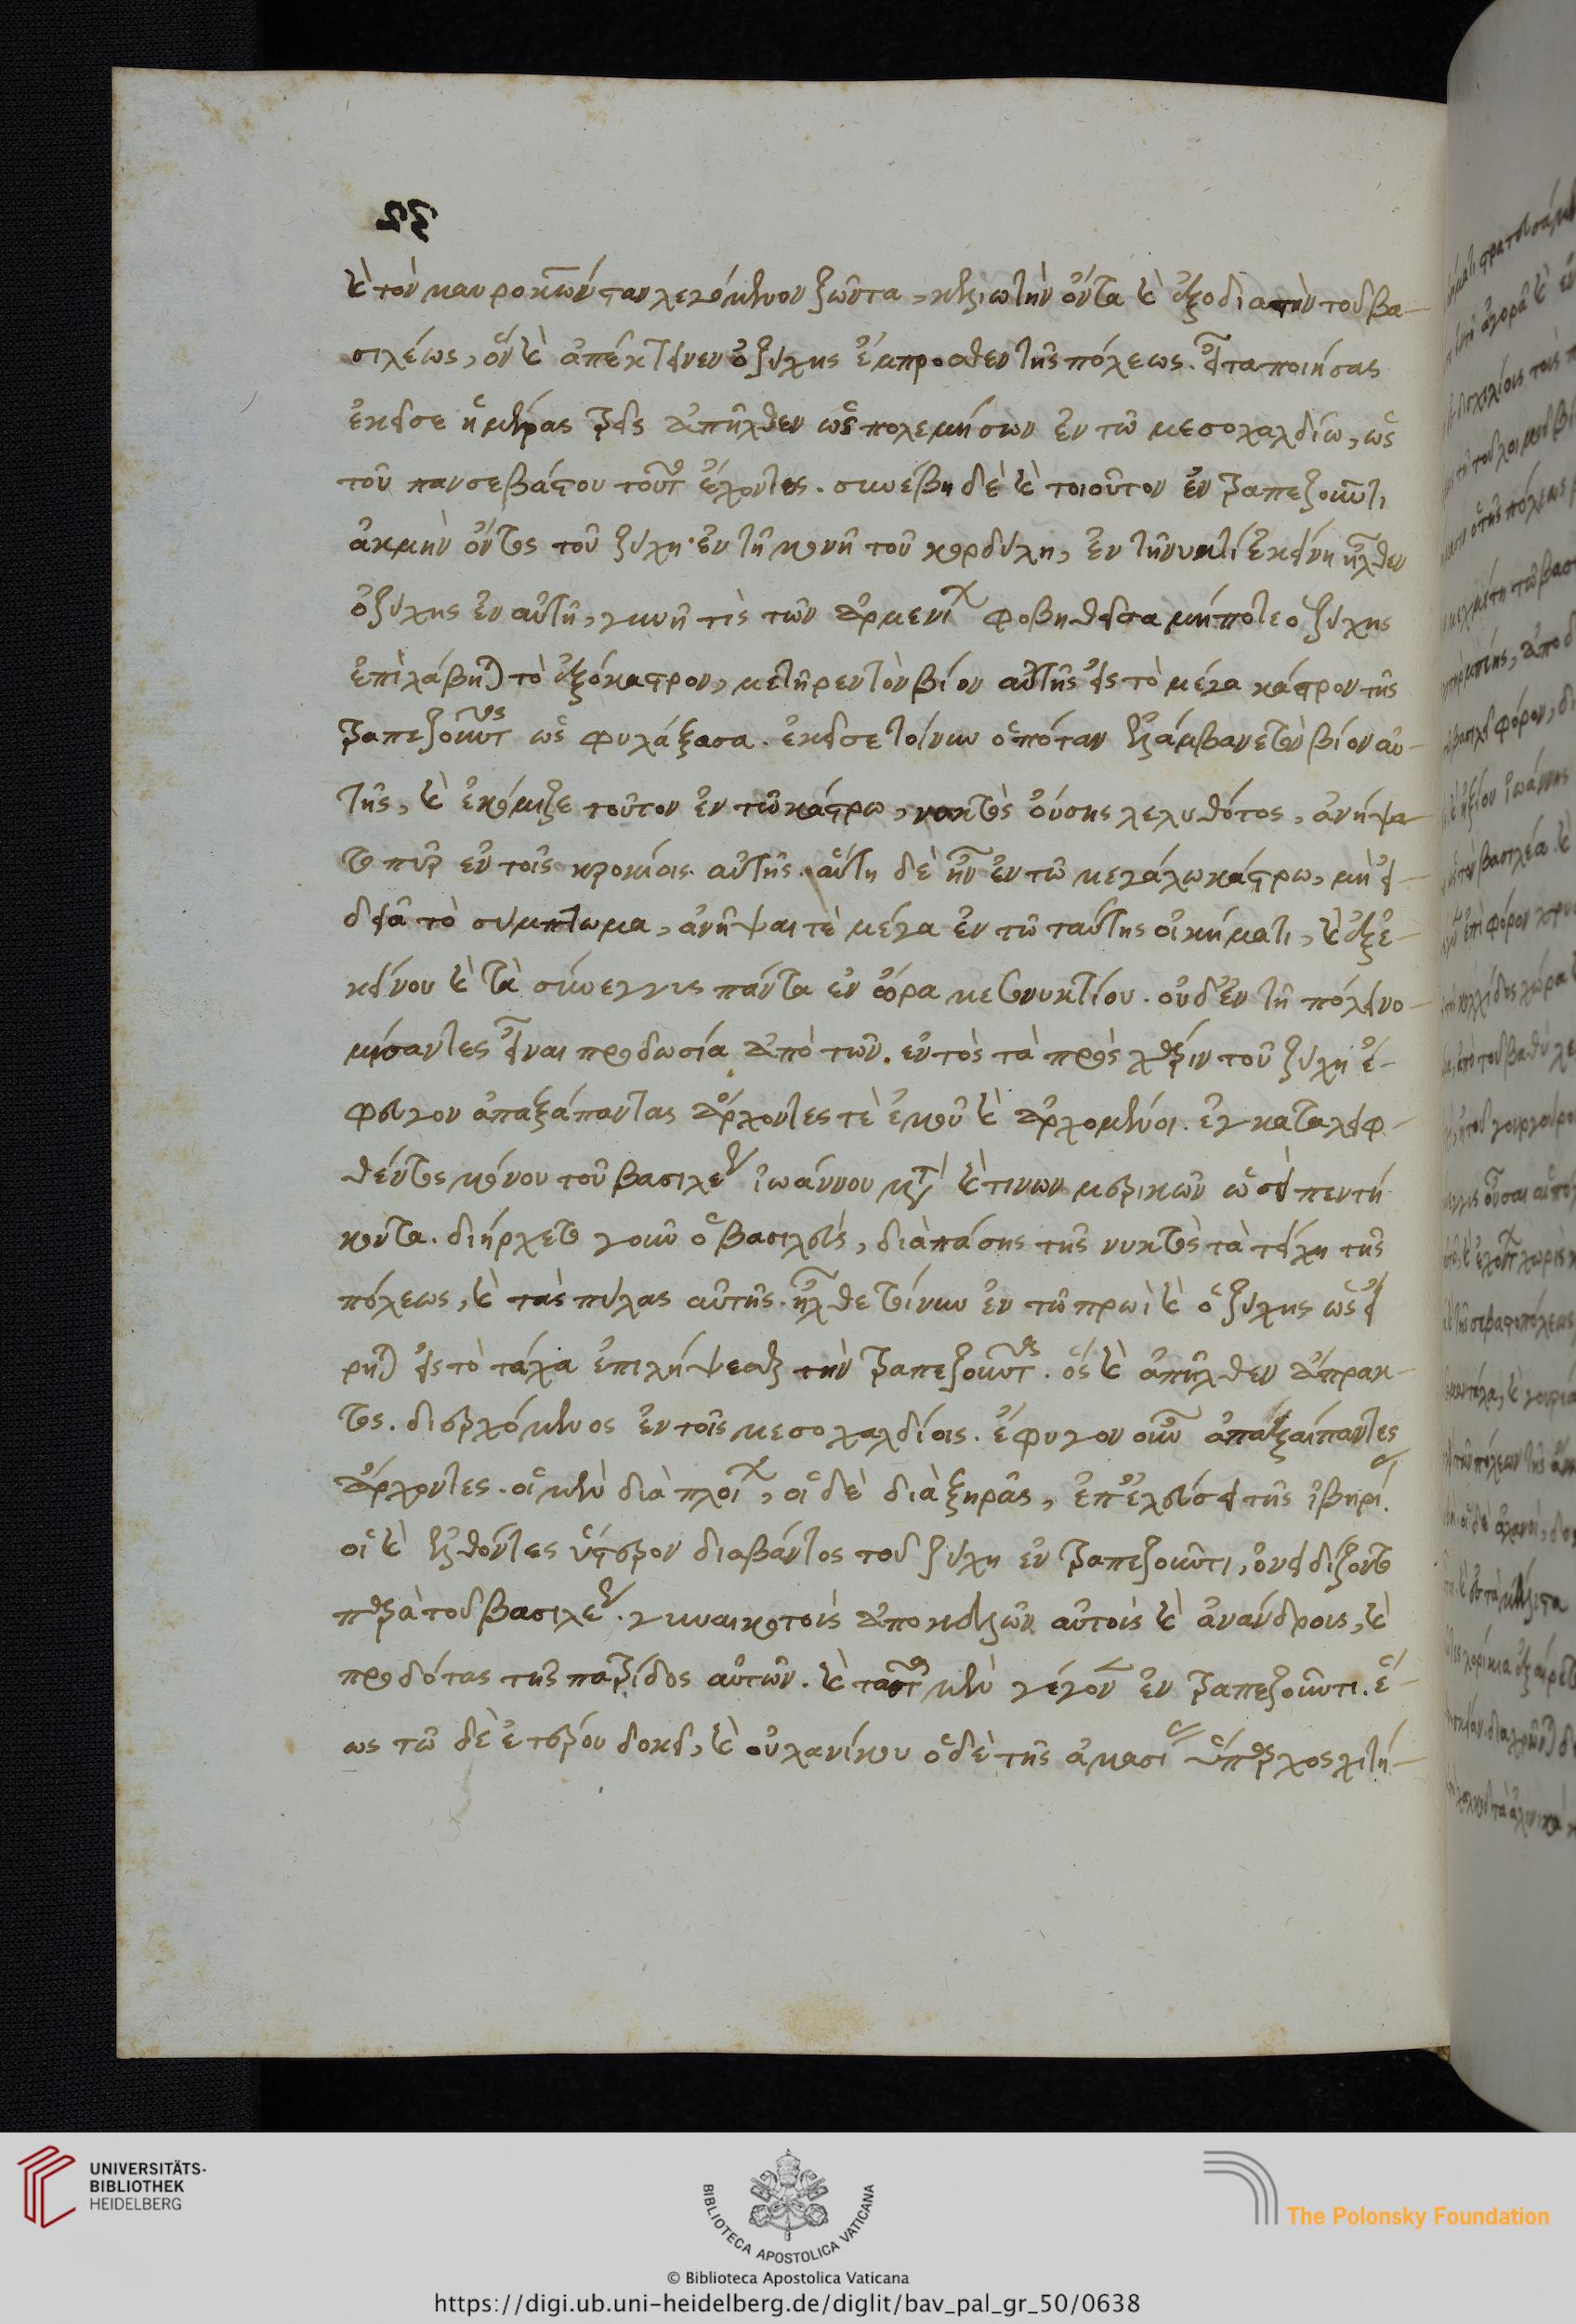 32
καὶ τὸν μαυροκώνσταν λεγόμενον ζῶντα, μελισιώτην ὄντα καὶ ἐξοδιαστὴν τοῦ βα-
σιλέως, ὃν καὶ ἀπέκτεινεν ὁ ζύχης ἔμπροσθεν τῆς πόλεως. εἶτα ποιήσας
ἐκεῖσε ἡμέρας τρεῖς ἀπῆλθεν ὡς πολεμήσων ἐν τῶ μεσοχαλδίω, ὡς
τοῦ πανσεβάστου τοῦτ ἔχοντος. συνέβη δὲ καὶ τοιοῦτον ἐν τραπεζοῦντι
ἀκμὴν ὄντος τοῦ ζύχη ἐν τῆ μονῆ τοῦ κορδύλη, ἐν τῆ νυκτὶ ἐκείνη ἦλθεν
ὁ ζύχης ἐν αὐτῆ, γυνή τις τῶν ἀρμενι^χ φοβηθεῖσα μήποτε ὁ ζύχης
ἐπιλάβηται τὸ ἐξόκαστρον, μετῆρεν τὸν βίον αὐτῆς εἰς τὸ μέγα κάστρον τῆς
τραπεζοῦντος ὡς φυλάξασα. ἐκεῖσε τοίνυν ὁπόταν ἐλάμβανε τὸν βίον αὐ-
τῆς, καὶ ἐκόμιζε τοῦτον ἐν τῶ κάστρω, νυκτὸς οὔσης λεληθότος, ἀνήψα
το πῦρ ἐν τοῖς κροκίοις αὐτῆς. αὕτη δὲ ἦν ἐν τῶ μεγάλω κάστρω, μὴ εἰ-
δεῖα τὸ σύμπτωμα, ἀνῆψαι τὲ μέγα ἐν τῶ ταύτης οἰκήματι, καὶ ἐξ ἐ-
κείνου καὶ τὰ σύνεγγις πάντα ἐν ὥρα μεσονυκτίου. οἱ δ' ἐν τῆ πόλει νο-
μίσαντες εἶναι προδωσία ἀπὸ τῶν ἐντὸς τὰ πρὸς χάριν τοῦ ζύχη ἔ-
φευγον ἀπαξάπαντας ἄρχοντες τὲ ὁμοῦ καὶ ἀρχομένοι. ἐγκαταλειφ-
θέντος μόνου τοῦ βασιλέως ἰωάννου μετὰ καὶ τινων μερικῶν ὡσεὶ πεντή
κοντα. διήρχετο γοῦν ὁ βασιλεὺς, διὰ πάσης τῆς νυκτὸς τὰ τείχη τῆς
πόλεως, καὶ τὰς πύλας αὐτῆς. ἦλθε τοίνυν ἐν τῶ πρωῒ καὶ ὁ ζύχης ὡς εἴ
ρηται εἰς τὸ τάχα ἐπιλήψεσθαι τὴν τραπεζοῦντος. ὃς καὶ ἀπῆλθεν ἄπρακ-
τος. διερχόμενος ἐν τοῖς μεσοχαλδίοις. ἔφυγον οὖν ἀπαξάπαντες
ἄρχοντες. οἱ μὲν διὰ πλοί^χ, οἱ δὲ διὰ ξηρᾶς, ἐπ' ἐλεύσει τῆς ἰβηρί.
οἳ καὶ ἐλθόντες ὕστερον διαβάντος τοῦ ζύχη ἐν τραπεζοῦντι, ὀνειδίζοντο
παρὰ τοῦ βασιλέως. γυναικοτοῖς ἀποκαλῶν αὐτοῖς καὶ ἀνάνδροις, καὶ
προδότας τῆς πατρίδος αὐτῶν. καὶ ταῦτα μὲν γέγον ἐν τραπεζοῦντι. ἕ-
ως τῶ δὲ ἑτέρου δοκεῖ, καὶ οὐλανίκου ὁ δὲ τῆς ἀμασι ὕπαρχος χιτή-
UNIVERSITÄTS-
BIBLIOTHEK
HEIDELBERG
BIBLIOTECA APOSTOLICA VATICANA
The Polonsky Foundation
© Biblioteca Apostolica Vaticana
https://digi.ub.uni-heidelberg.de/diglit/bav_pal_gr_50/0638